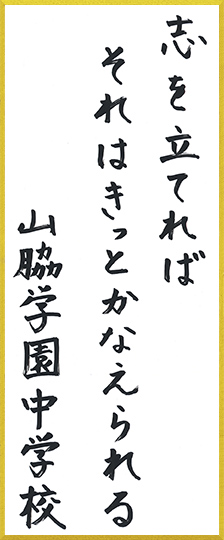 志を立てれば
それはきっとかなえられる
山脇学園中学校